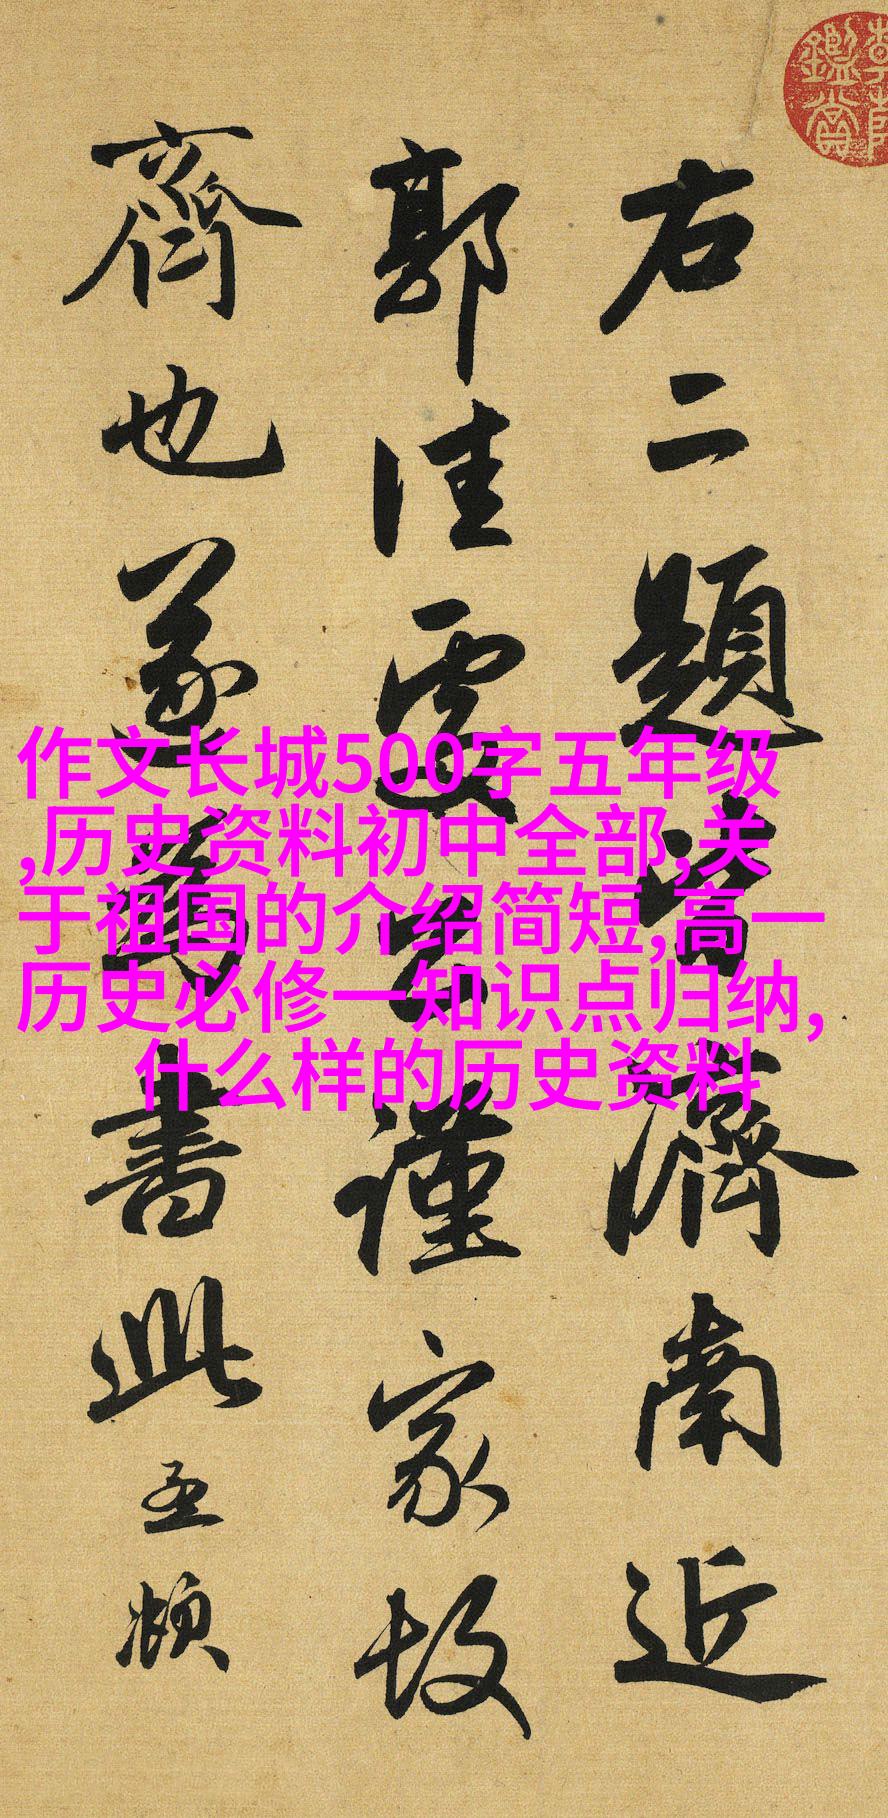 右二題皆濟南近
郭佳處公謹家故
齊也遂為書此孟頫
作文长城500字五年级
,历史资料初中全部,关
于祖国的介绍简短,高一
历史必修一知识点归纳,
什么样的历史资料
鑑賞